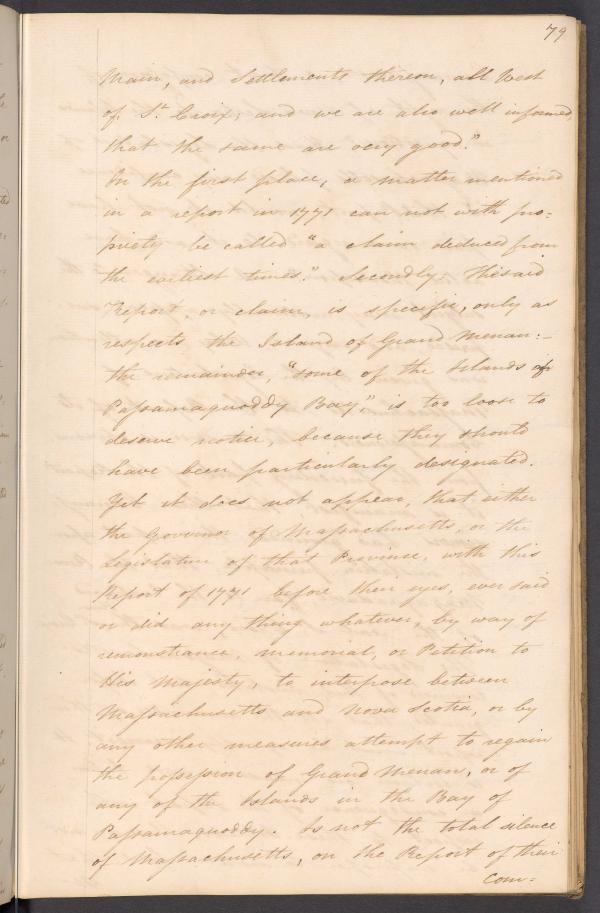 79
Main, and Settlements thereon, all West
of St. Croix; and we are also well informed,
that the same are very good."
In the first place, a matter mentioned
in a report in 1771 can not with pro=
priety be called "a claim deduced from
the earliest times." Secondly. This aid
Report, or claim, is specific, only as
respects the Island of Grand Menan:-
the remainder, "some of the Islands of
Passamaquoddy Bay," is too loose to
deserve notice, because they should
have been particularly designated.
Yet it does not appear, that either
the Governor of Massachusetts, or the
Legislature of that Province, with this
Report of 1771 before their eyes, ever said
or did any thing whatever, by way of
remonstrance, memorial, or Petition to
His Majesty, to interpose between
Massachusetts and Nova Scotia, or by
any other measures attempt to regain
the possession of Grand Menan, or of
any of the Islands in the Bay of
Passamaquoddy. Is not the total silence
of Massachusetts, on the Report of their
Com=